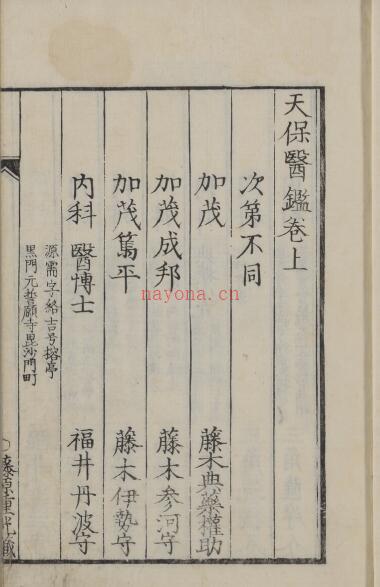 天保醫鑑卷上
次第不同
加茂 藤木典藥權助
加茂成邦 藤木參河守
加茂篤平 藤木伊勢守
内科 醫博士 福井丹波守
源需字終吉号榕亭
黒門元誓願寺毘沙門町
nayona.cn